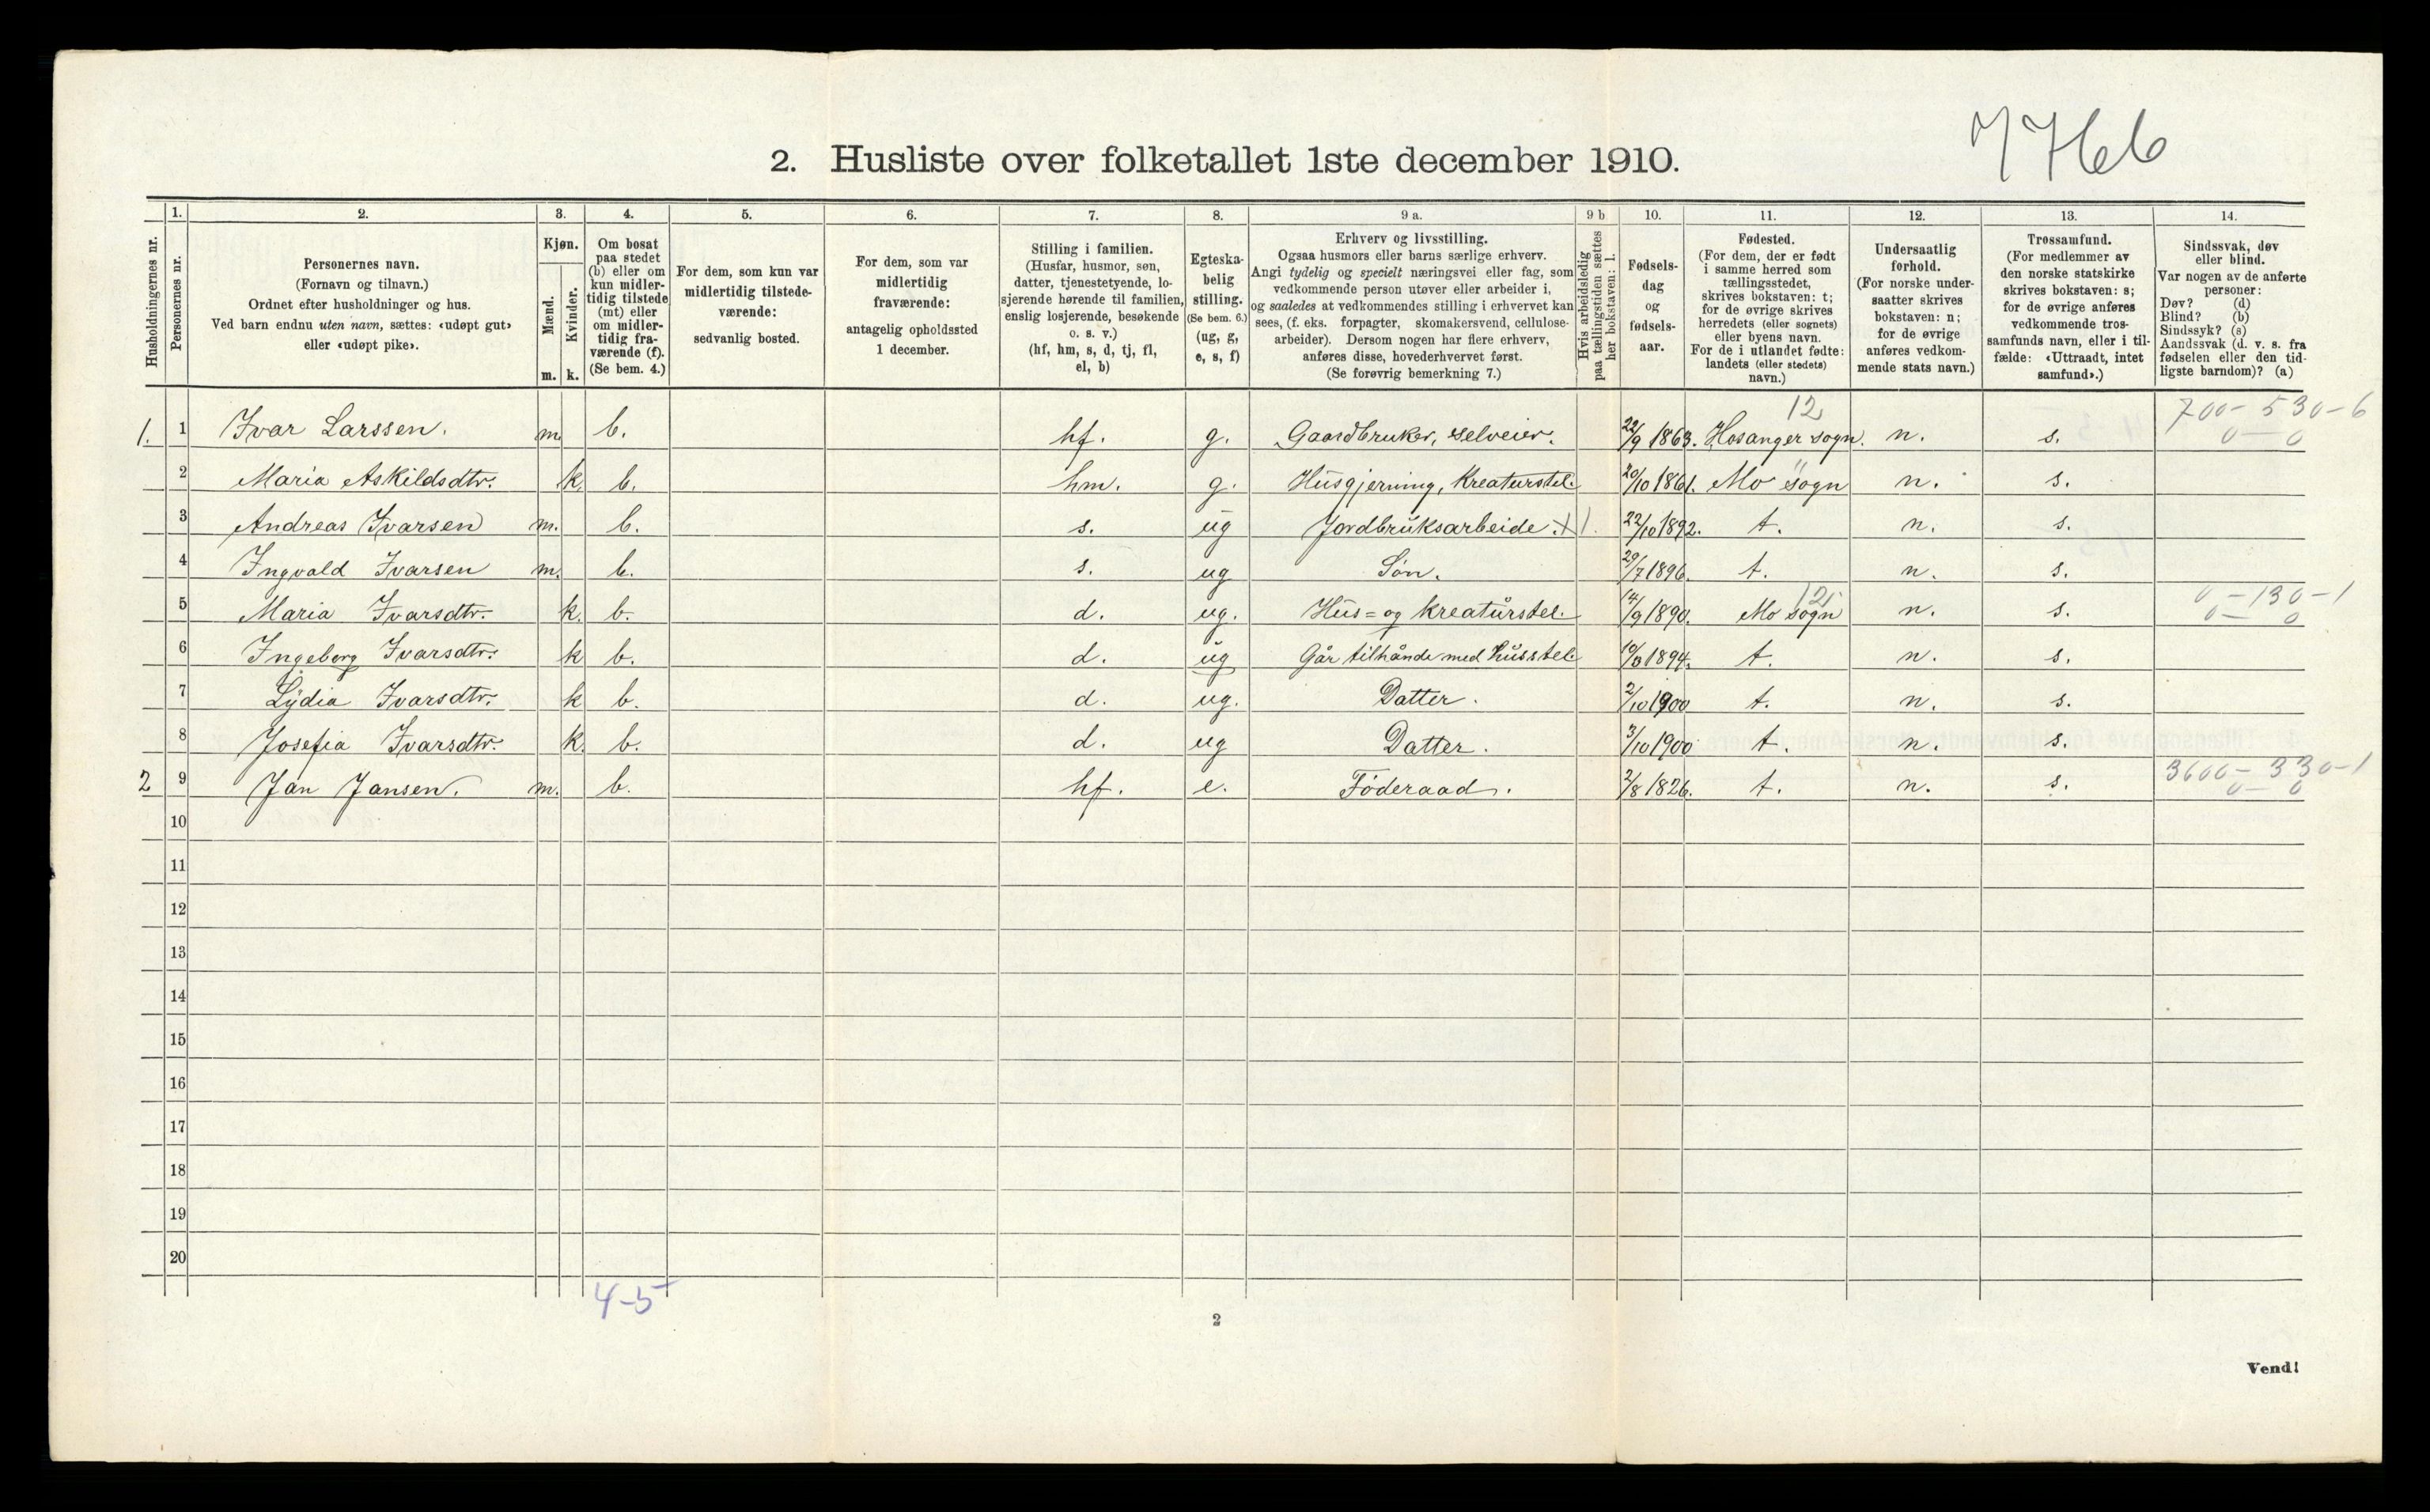 7766
2. Husliste over folketallet 1ste december 1910.
Husholdningernes nr.
1. Personernes nr.
2. Personernes navn. (Fornavn og tilnavn.) Ordnet efter husholdninger og hus. Ved barn endnu uten navn, sættes: «udøpt gut» eller «udøpt pike».
3. Kjøn. Mænd. m. Kvinder. k.
4. Om bosat paa stedet (b) eller om kun midlertidig tilstede (mt) eller om midlertidig fraværende (f). (Se bem. 4.)
5. For dem, som kun var midlertidig tilstedeværende: sedvanlig bosted.
6. For dem, som var midlertidig fraværende: antagelig opholdssted 1 december.
7. Stilling i familien. (Husfar, husmor, søn, datter, tjenestetyende, losjerende hørende til familien, enslig losjerende, besøkende o. s. v.) (hf, hm, s, d, tj, fl, el, b)
8. Egteskabelig stilling. (Se bem. 6.) (ug, g, e, s, f)
9 a. Erhverv og livsstilling. Ogsaa husmors eller barns særlige erhverv. Angi tydelig og specielt næringsvei eller fag, som vedkommende person utøver eller arbeider i, og saaledes at vedkommendes stilling i erhvervet kan sees, (f. eks. forpagter, skomakersvend, cellulosearbeider). Dersom nogen har flere erhverv, anføres disse, hovederhvervet først. (Se forøvrig bemerkning 7.)
9 b Hvis arbeidsledig paa tællingstiden sættes her bokstaven: l.
10. Fødselsdag og fødselsaar.
11. Fødested. (For dem, der er født i samme herred som tællingsstedet, skrives bokstaven: t; for de øvrige skrives herredets (eller sognets) eller byens navn. For de i utlandet fødte: landets (eller stedets) navn.)
12. Undersaatlig forhold. (For norske undersaatter skrives bokstaven: n; for de øvrige anføres vedkommende stats navn.)
13. Trossamfund. (For medlemmer av den norske statskirke skrives bokstaven: s; for de øvrige anføres vedkommende trossamfunds navn, eller i tilfælde: «Uttraadt, intet samfund».)
14. Sindssvak, døv eller blind. Var nogen av de anførte personer: Døv? (d) Blind? (b) Sindssyk? (s) Aandssvak (d. v. s. fra fødselen eller den tidligste barndom)? (a)
12 700-530-6
1. 1 Ivar Larssen. m b. hf. g. Gaardbruker, selveier. 22/9 1863. Hosanger sogn. n. s. 0-0
2 Maria Askildsdtr. k. b. hm. g. Husgjerning, Kreaturstel. 20/10 1861. Mo sogn n. s.
3 Andreas Ivarsen m. b. s. ug Jordbruksarbeide. 22/10 1892. t. n. s.
4 Ingvald Ivarsen m. b. s. ug Søn. 29/7 1896. t. n. s.
0-130-1
5 Maria Ivarsdtr. k. b. d. ug. Hus= og kreaturstel. 14/9 1890. Mo sogn n. s. 0-0
6 Ingeborg Ivarsdtr. k b. d. ug Går tilhånde med Husstel. 1894. t. n. s.
7 Lydia Ivarsdtr. k b. d. ug. Datter. 2/10 1900 t. n. s.
8 Josefia Ivarsdtr. k. b. d. ug Datter. 3/10 1900 t. n. s.
3600-330-1
2 9 Jan Jansen. m. b. hf. e. Föderaad. 2/8 1826. t. n. s. 0-0
10
11
12
13
14
15
16
17
18
19
20
4-5
2
Vend!